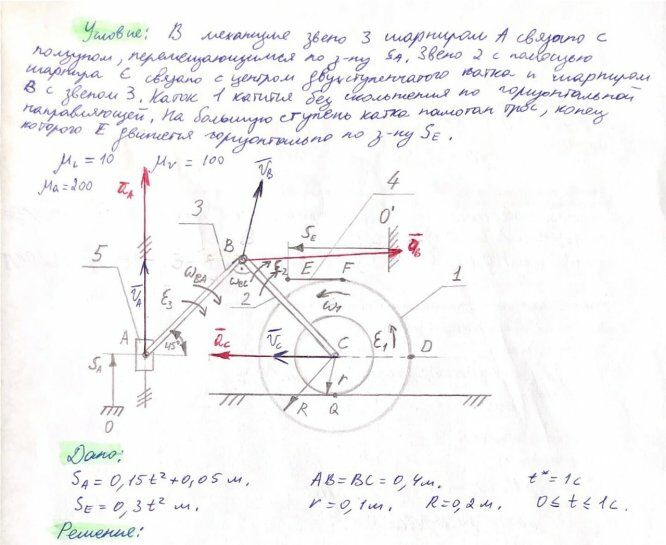 Условие: В механизме звено 3 шарниром А связано с
ползуном, перемещающимся по з-ну SA. Звено 2 с помощью
шарнира С связано с центром двухступенчатого катка и шарниром
В с звеном 3. Каток 1 катится без скольжения по горизонтальной
направляющей. На большую ступень катка намотан трос, конец
которого Е движется горизонтально по з-ну SE.
μL = 10 μV = 100
μa = 200
āA
V̄B
4
O'
3
SE
B
āB
5
ωBA
ε2
E F
1
V̄A
ε3
ωBC
2
ω1
A
45°
āC
V̄C
C
ε1
D
SA
r
O
R
Q
Дано:
SA = 0,15t² + 0,05 м. AB = BC = 0,4м. t* = 1с
SE = 0,3t² м. r = 0,1м. R = 0,2м. 0 ≤ t ≤ 1с.
Решение: